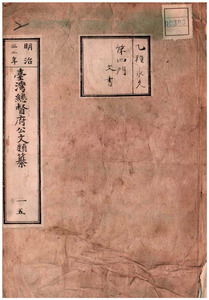 乙種永久
第四門
文書
明治
三二年
臺灣總督府公文類纂
一五